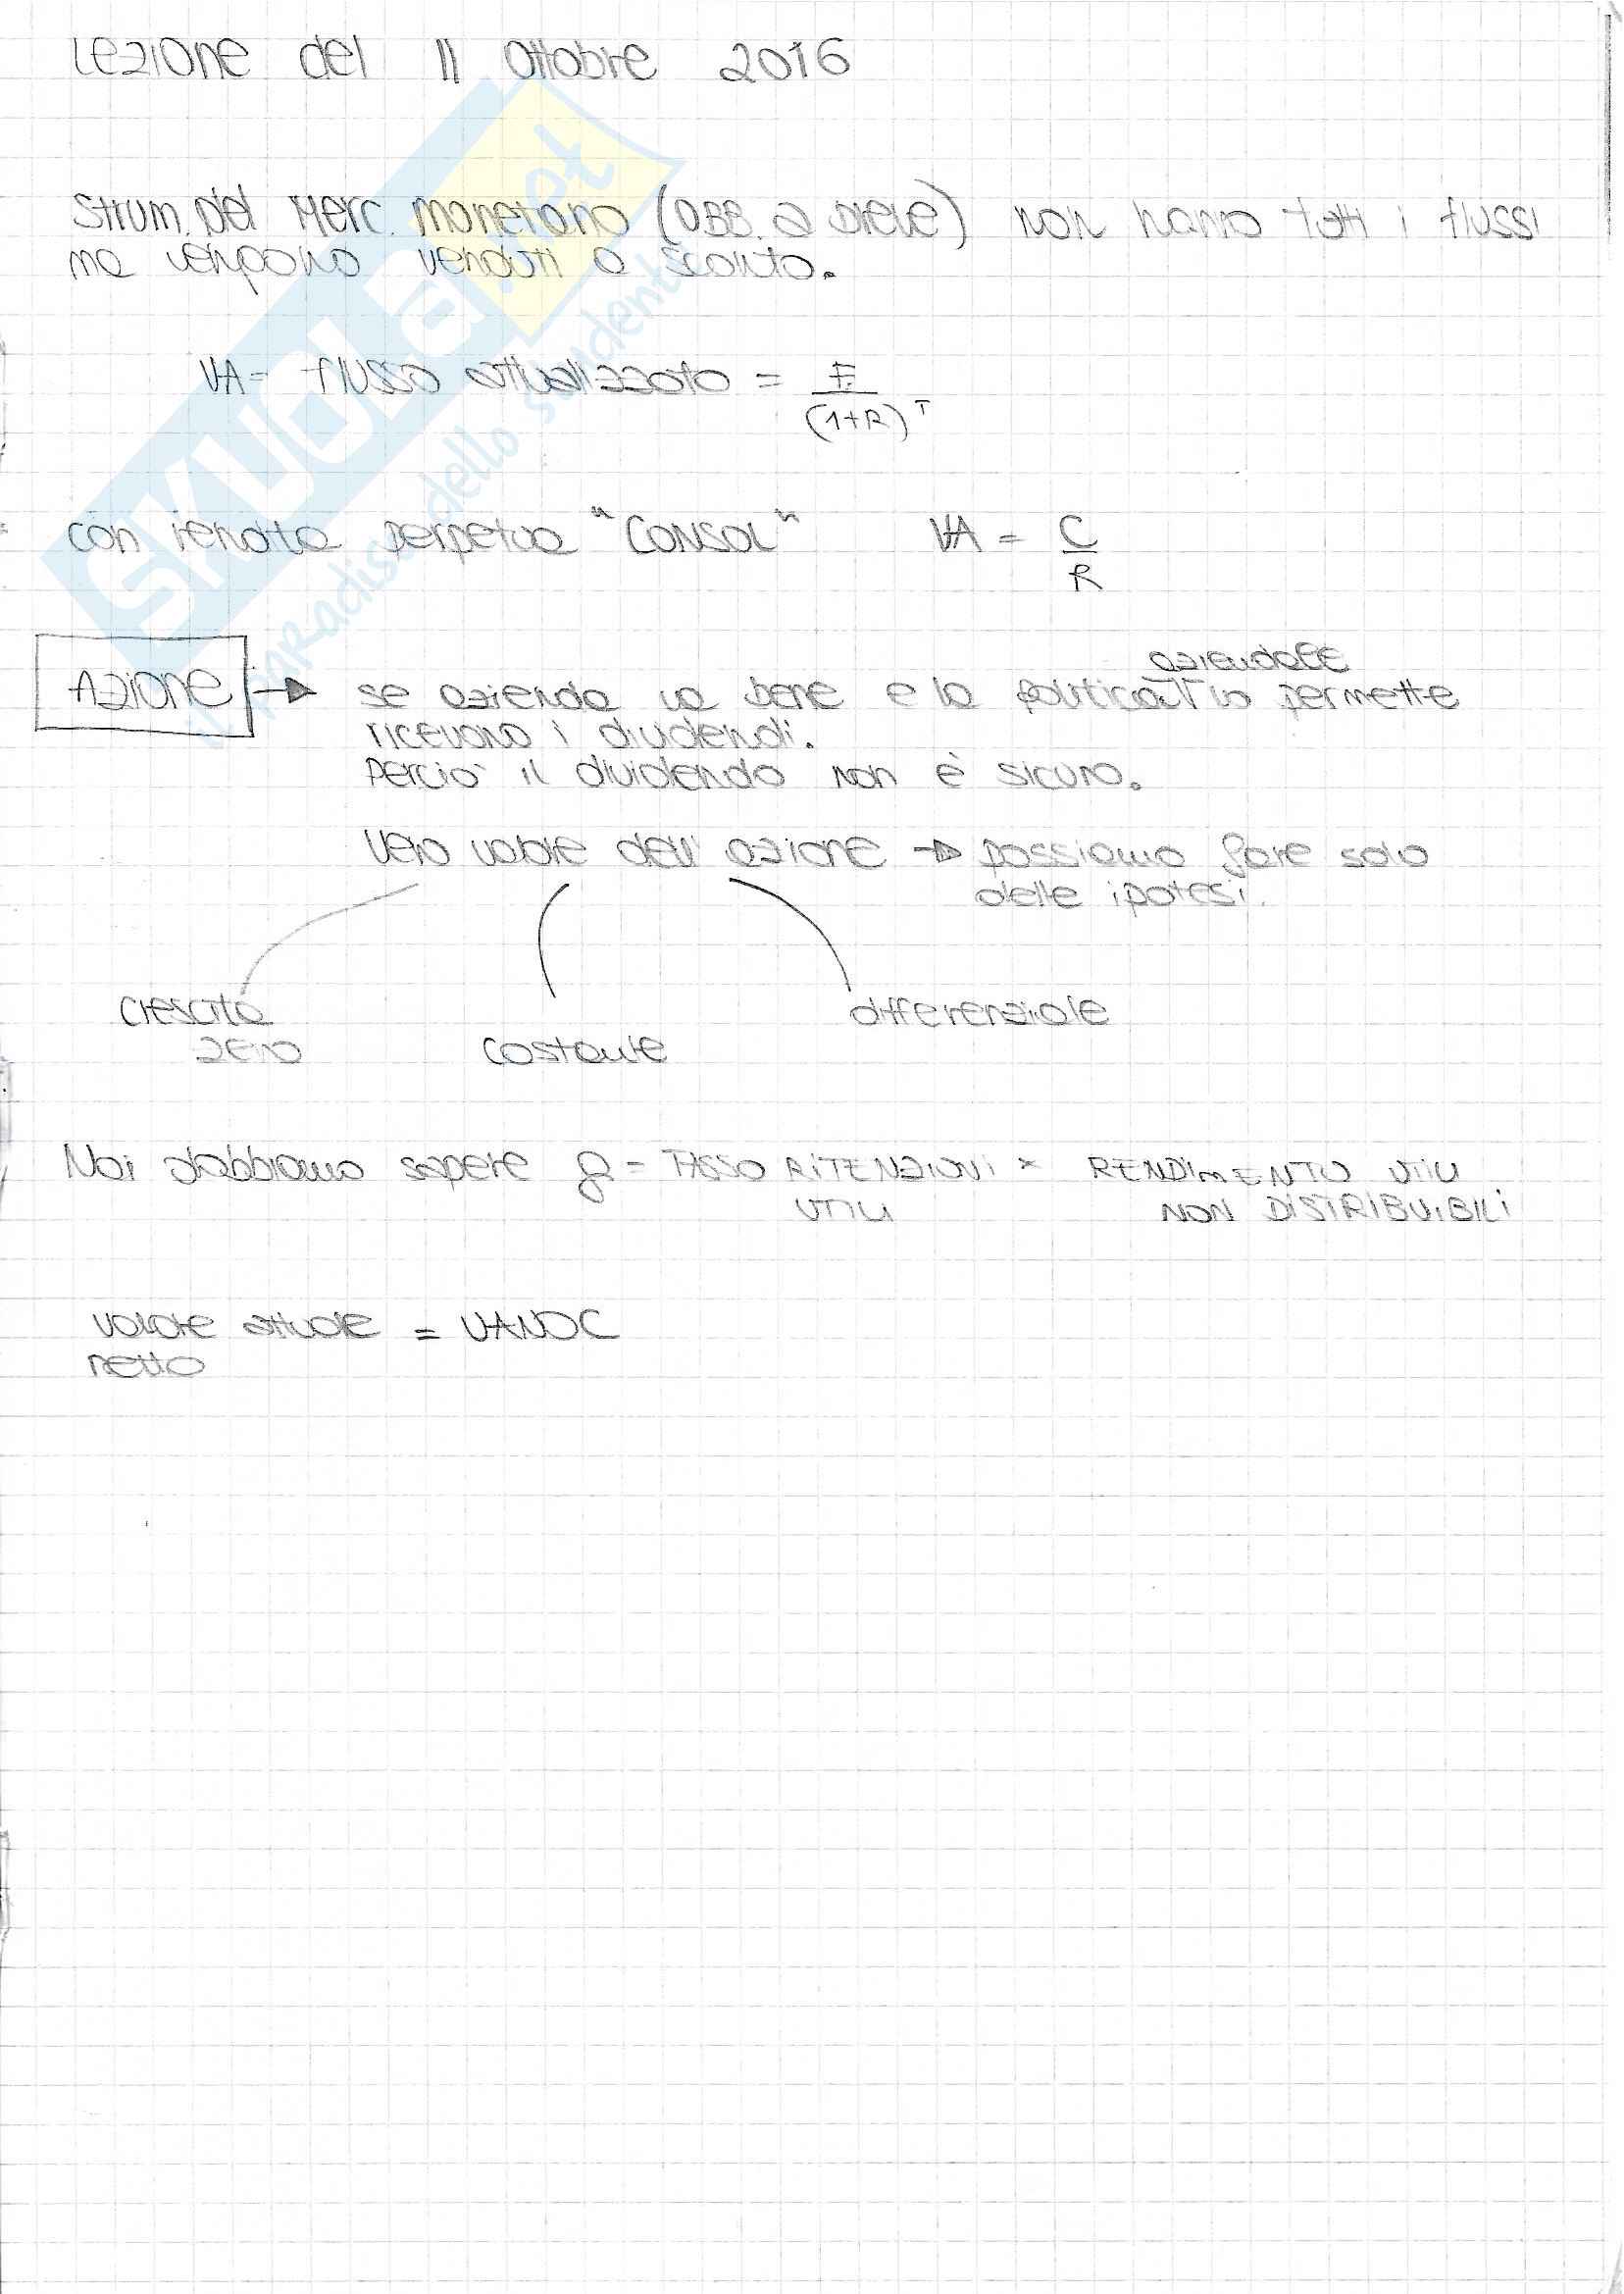 Lezione del 11 Ottobre 2016
Strum. del Merc. monetario (OBB. a breve) non hanno tutti i flussi
ma vengono venduti a sconto.
VA = flusso attualizzato = F / (1+R)^T
con rendita perpetua "CONSOL" VA = C / R
aziendale
AZIONE → se azienda va bene e la politica lo permette
ricevono i dividendi.
Perciò il dividendo non è sicuro.
Vero valore dell'azione → possiamo fare solo
delle ipotesi.
crescita
zero
costante
differenziale
Noi dobbiamo sapere g = TASSO RITENZIONI × RENDIMENTO UTILI
UTILI NON DISTRIBUIBILI
valore attuale = VANOC
netto
SKUOLA.net
il paradiso dello studente